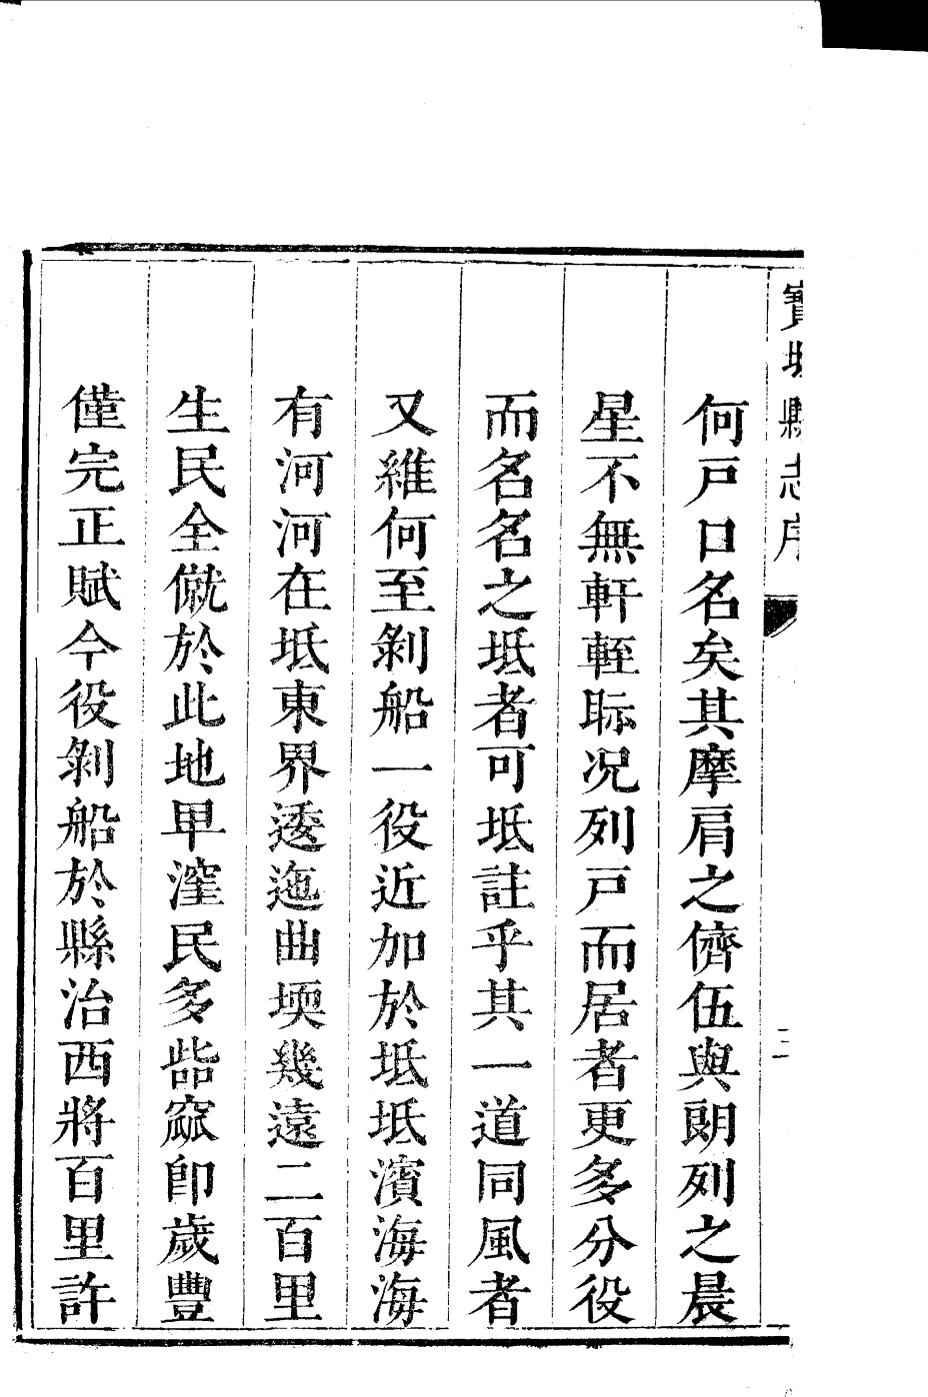 寶坻縣志序
二
何戸口名矣其摩肩之儕伍與朗列之晨
星不無軒輊眎况列戸而居者更多分役
而名名之坻者可坻註乎其一道同風者
又維何至剝船一役近加於坻坻濱海海
有河河在坻東界逶迤曲堧幾遠二百里
生民全僦於此地甲漥民多呰窳卽歲豐
僅完正賦今役剝船於縣治西將百里許